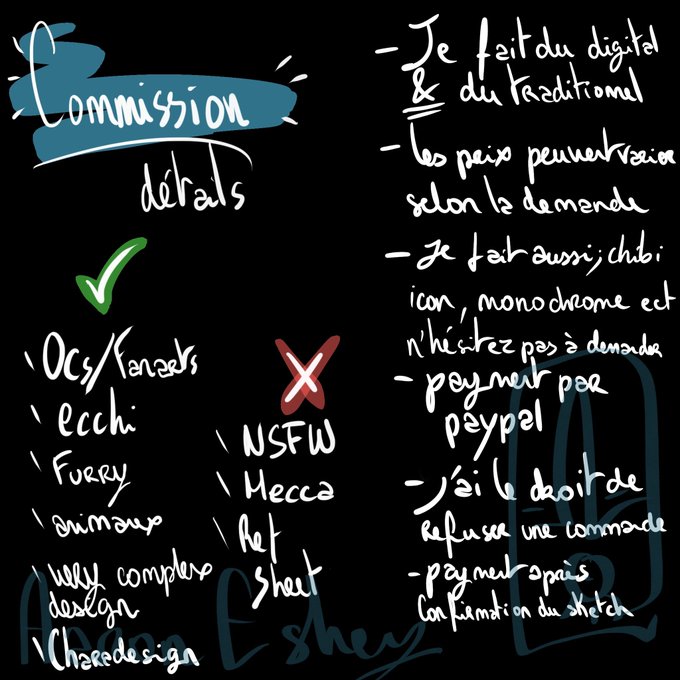 Commission
détails
\ Ocs/Fanarts
\ ecchi
\ Furry
\ animaux
\ very complexe
design
\ Charadesign
\ NSFW
\ Mecca
\ Ref
sheet
- Je fait du digital
& du traditionel
- les prix peuvent varier
selon la demande
- Je fait aussi; chibi
icon, monochrome ect
n'hésitez pas à demander
- payment par
paypal
- j'ai le droit de
refuser une commande
- payment après
confirmation du sketch
Eshey